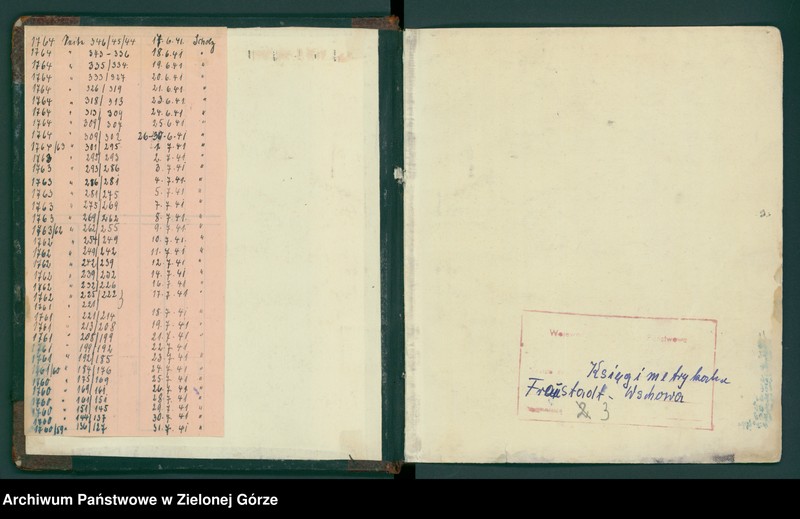 1764 Seite 346/45/44 17.6.41. Scholz
1764 " 343-336 18.6.41 "
1764 " 335/334 19.6.41 "
1764 " 333/327 20.6.41 "
1764 " 326/319 21.6.41 "
1764 " 318/313 23.6.41 "
1764 " 313/309 24.6.41 "
1764 " 309/307 25.6.41 "
1764 " 309/302 26-30.6.41 "
1764/63 " 301/295 1.7.41 "
1763 " 295/293 2.7.41 "
1763 " 293/286 3.7.41 "
1763 " 286/281 4.7.41. "
1763 " 281/275 5.7.41 "
1763 " 275/269 7.7.41 "
1763 " 269/262 8.7.41. "
1763/62 " 262/255 9.7.41 "
1762 " 254/249 10.7.41. "
1762 " 249/242 11.7.41 "
1762 " 242/239 12.7.41 "
1762 " 239/232 14.7.41 "
1762 " 232/226 16.7.41 "
1762 " 225/222 17.7.41 "
1761 " 221
1761 " 221/214 18.7.41 "
1761 " 213/208 19.7.41 "
1761 " 208/199 21.7.41 "
1761 " 199/192 22.7.41 "
1761 " 192/185 23.7.41 "
1761/60 " 184/176 24.7.41 "
1760 " 175/169 25.7.41 "
1760 " 169/161 26.7.41 "
1760 " 161/151 28.7.41 "
1760 " 151/145 29.7.41 "
1760 " 144/137 30.7.41 "
1760/59 " 136/127 31.7.41 "
Księgi metrykalne
Fraustadt - Wschowa
3
Archiwum Państwowe w Zielonej Górze